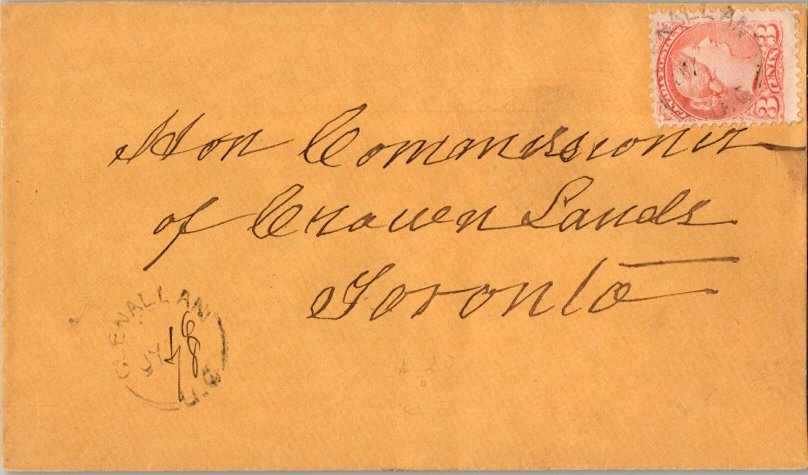 Hon Commissioner
of Crown Lands
Toronto
GLENALLAN
JY
U.C
NALLAN
U.C
3 CENTS 3